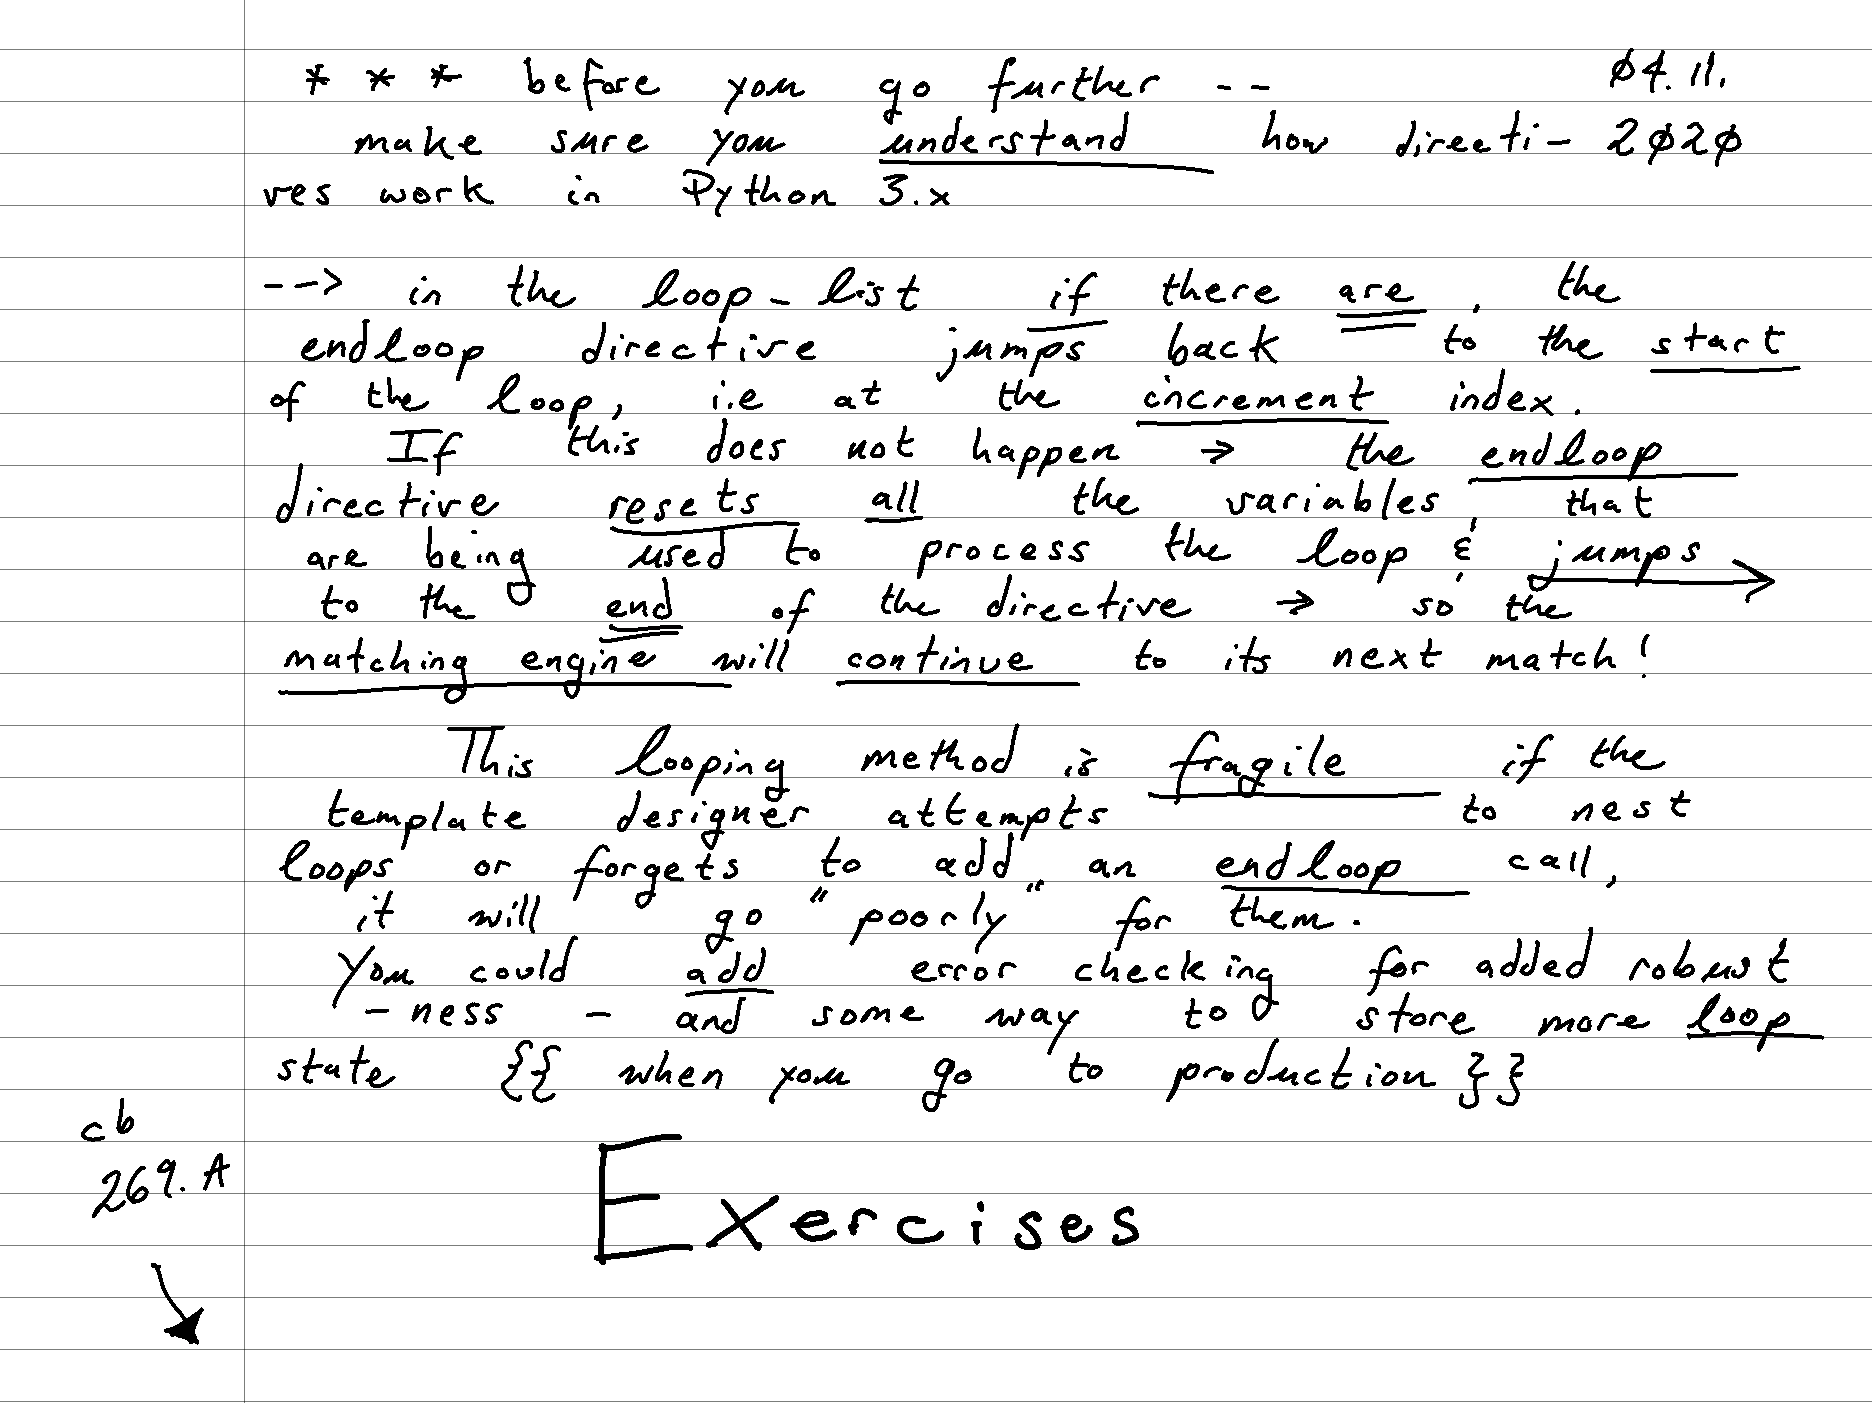 * * * before you go further -- 04.11.
make sure you understand how directi- 2020
ves work in Python 3.x
--> in the loop-list if there are, the
endloop directive jumps back to the start
of the loop, i.e at the increment index.
If this does not happen → the endloop
directive resets all the variables that
are being used to process the loop & jumps
to the end of the directive → so the
matching engine will continue to its next match!
This looping method is fragile if the
template designer attempts to nest
loops or forgets to add an endloop call,
it will go "poorly" for them.
You could add error checking for added robust
-ness - and some way to store more loop
state {{ when you go to production }}
cb
269.A
Exercises